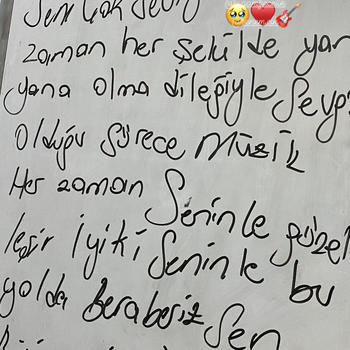 Seni Çok Sev
zaman her şekilde yan
yana olma dileğiyle Sevgi
Olduğu Sürece Müzik
Her zaman Seninle güzel
leşir İyiki Seninle bu
yolda beraberiz Sen